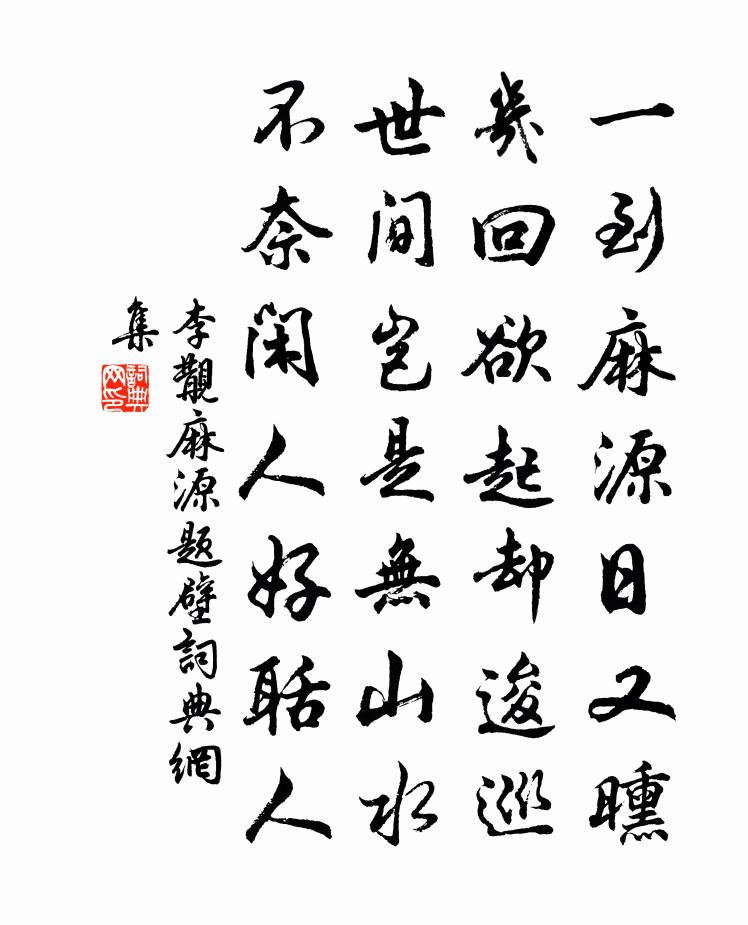 一到麻源日又曛
幾回欲起却逡巡
世間豈是無山水
不奈閑人好聒人
李覯麻源題壁詞典網
集
詞典
网印